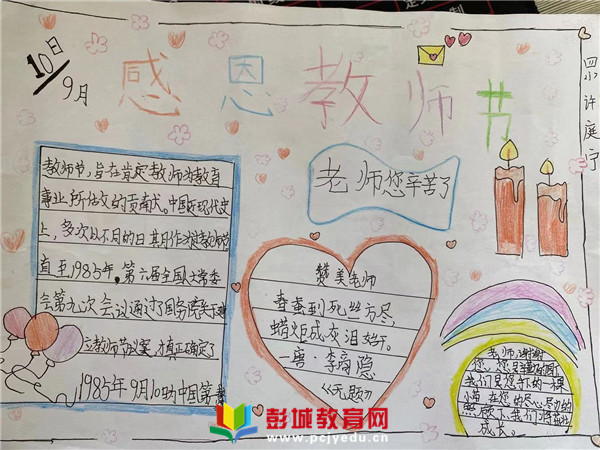 10日
9月
感恩教师节
四小 许庭宁
老师您辛苦了
教师节,旨在肯定教师为教育
事业所付出的贡献。中国近现代史
上,多次以不同的日期作为教师节
直至1985年,第六届全国人大常委
会第九次会议通过了国务院关于建
立教师节议案,才真正确定了
1985年9月10日为中国第
赞美老师
春蚕到死丝方尽,
蜡炬成灰泪始干。
唐·李商隐
《无题》
老师,谢谢
您,您是
我们是您手下的一棵
小苗 在您的尽心尽力的
照顾下,我们将茁壮
成长。
彭城教育网
www.pcjyedu.cn